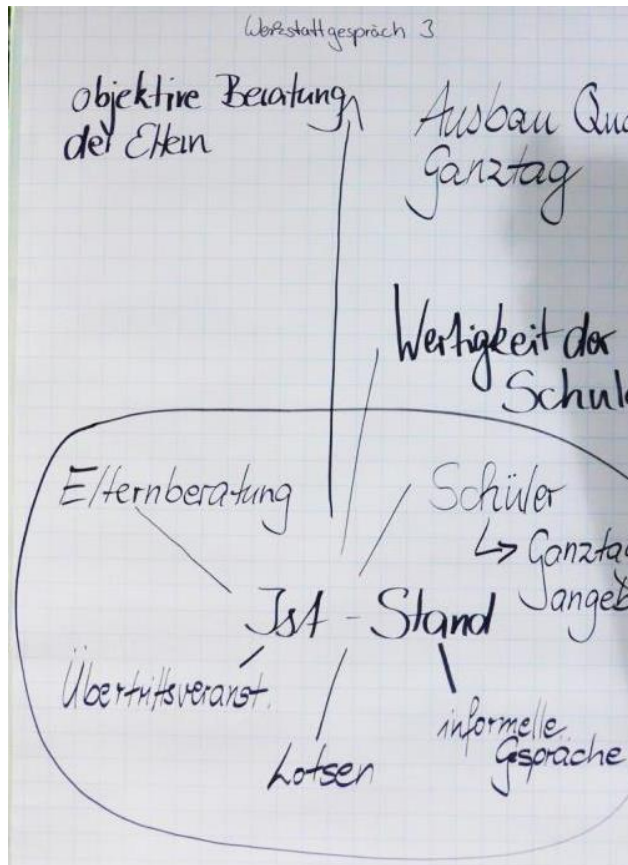 Werkstattgespräch 3
objektive Beratung
der Eltern
Ausbau
Ganztag
Wertigkeit der
Elternberatung
Schüler
↳
Ist - Stand
Übertrittsveranst.
Lotsen
informelle
Gespräche